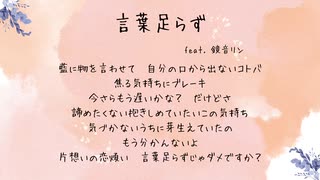 言葉足らず
feat. 鏡音リン
藍に物を言わせて　自分の口から出ないコトバ
焦る気持ちにブレーキ
今さらもう遅いかな？　だけどさ
諦めたくない抱きしめていたいこの気持ち
気づかないうちに芽生えていたの
もう分かんないよ
片想いの恋煩い　言葉足らずじゃダメですか？